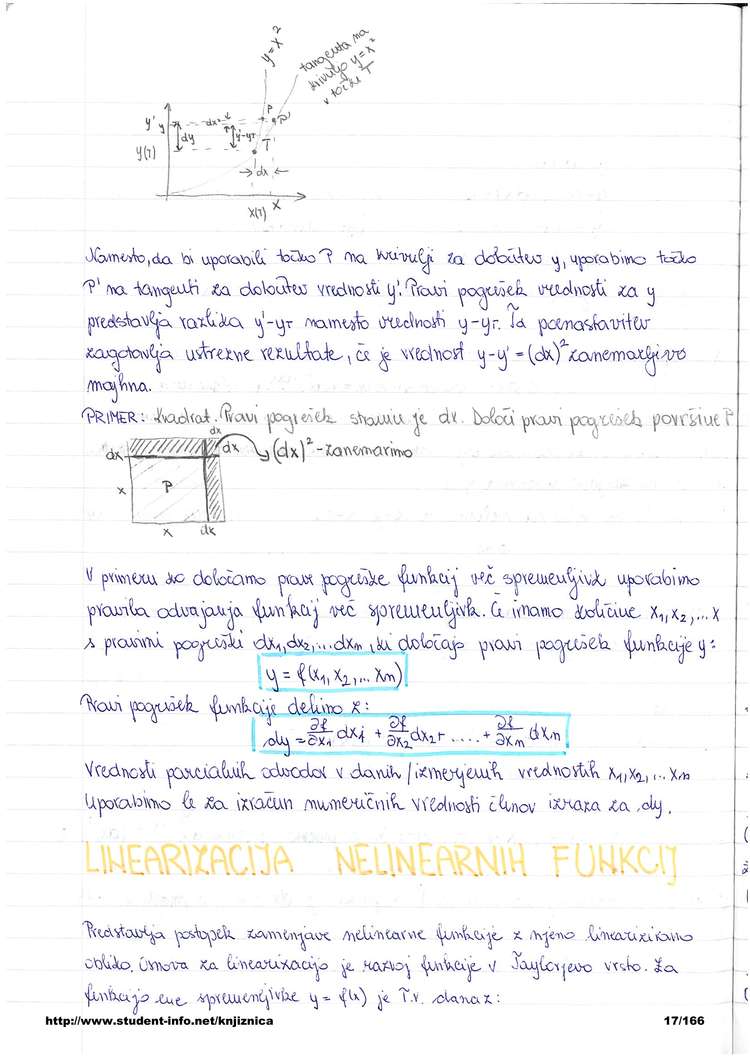 y=x²
tangenta na
krivuljo y=x²
v točki T
P
P'
y'
y
dy
dx²
y'-yT
T
y(T)
dx
x(T)
x
Namesto, da bi uporabili točko P na krivulji za določitev y, uporabimo točko
P' na tangenti za določitev vrednosti y'. Pravi pogrešek vrednosti za y
predstavlja razlika y'-yT namesto vrednosti y-yT. Ta poenastavitev
zagotavlja ustrezne rezultate, če je vrednost y-y' = (dx)² zanemarljivo
majhna.
PRIMER: Kvadrat. Pravi pogrešek stranic je dx. Določi pravi pogrešek površine P
dx
dx
dx
(dx)² - zanemarimo
x
P
x
dx
V primeru ko določamo prave pogreške funkcij več spremenljivk uporabimo
pravila odvajanja funkcij več spremenljivk. Če imamo količine x1, x2, ... x
s pravimi pogreški dx1, dx2, ... dxn, ki določajo pravi pogrešek funkcije y:
y = f(x1, x2, ... xn)
Pravi pogrešek funkcije dobimo z:
dy = ∂f/∂x1 dx1 + ∂f/∂x2 dx2 + .... + ∂f/∂xn dxn
Vrednosti parcialnih odvodov v danih/izmerjenih vrednostih x1, x2, ... xn
uporabimo le za izračun numeričnih vrednosti členov izraza za dy.
LINEARIZACIJA NELINEARNIH FUNKCIJ
Predstavlja postopek zamenjave nelinearne funkcije z njeno linearizirano
obliko. Osnova za linearizacijo je razvoj funkcije v Taylorjevo vrsto. Za
funkcijo ene spremenljivke y = f(x) je T.v. dana z:
http://www.student-info.net/knjiznica 17/166